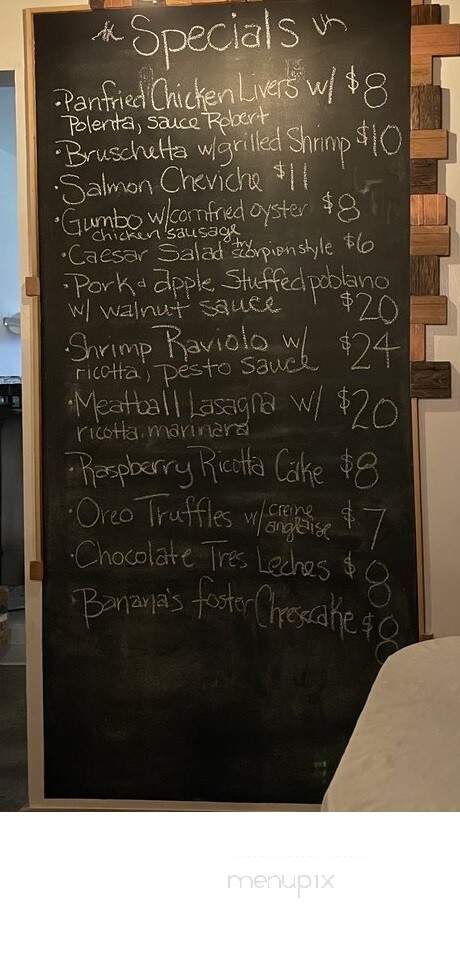 Specials
Panfried Chicken Livers w/ $8
Polenta, sauce Robert
Bruschetta w/grilled Shrimp $10
Salmon Cheviche $11
Gumbo w/cornfried oyster $8
chicken sausage
Caesar Salad try scorpion style $6
Pork & apple Stuffed poblano
w/ walnut sauce $20
Shrimp Raviolo w/ $24
ricotta, pesto sauce
Meatball Lasagna w/ $20
ricotta, marinara
Raspberry Ricotta Cake $8
Oreo Truffles w/ creme $7
anglaise
Chocolate Tres Leches $8
Banana's foster Cheesecake $8
menupix